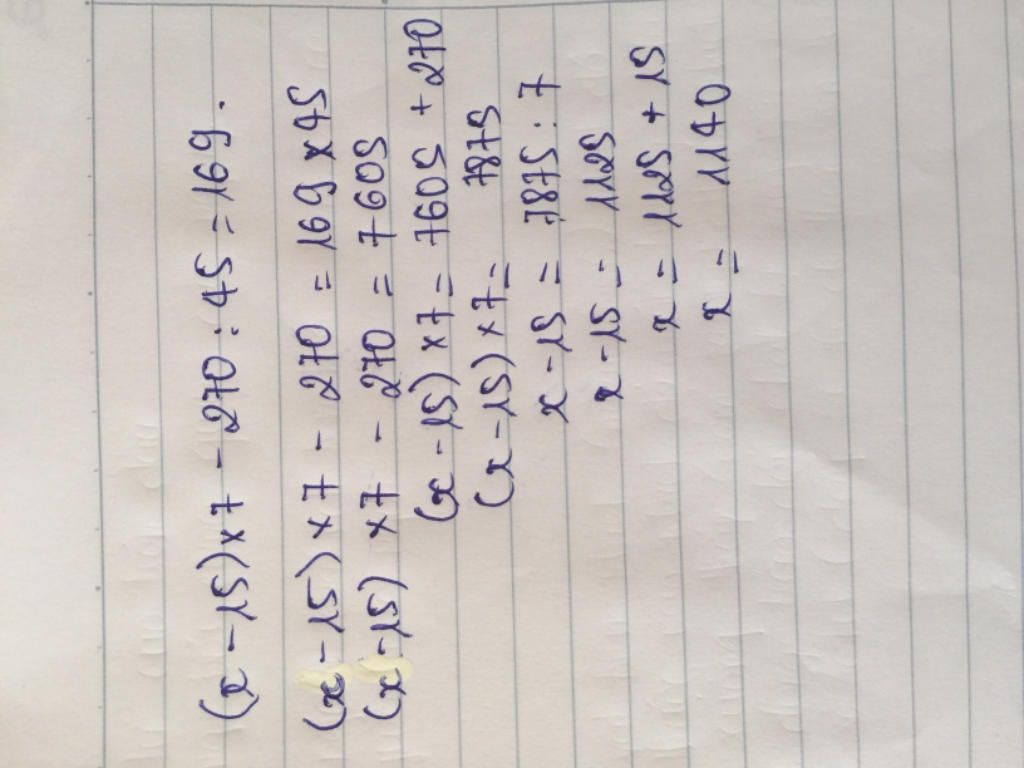 (x - 15) x 7 - 270 : 45 = 169.
(x - 15) x 7 - 270 = 169 x 45
(x - 15) x 7 - 270 = 7605
(x - 15) x 7 = 7605 + 270
(x - 15) x 7 = 7875
x - 15 = 7875 : 7
x - 15 = 1125
x = 1125 + 15
x = 1140